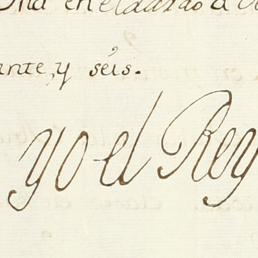 en el
ante, y séis.
yo el Rey